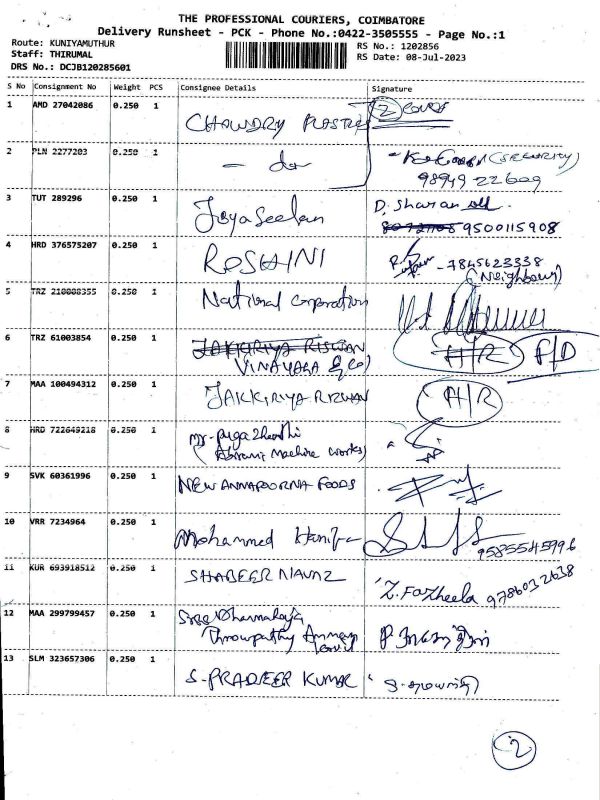 THE PROFESSIONAL COURIERS, COIMBATORE
Delivery Runsheet - PCK - Phone No.:0422-3505555 - Page No.:1
Route: KUNIYAMUTHUR
Staff: THIRUMAL
DRS No.: DCJB120285601
RS No.: 1202856
RS Date: 08-Jul-2023
S No Consignment No Weight PCS Consignee Details Signature
1 AMD 27042086 0.250 1 CHAWDRY PLASTICS 2 COVERS
2 PLN 2277203 0.250 1 - do - (SECURITY)
98949 22609
3 TUT 289296 0.250 1 Jeyaseelan D. Sharan
9500115908
4 HRD 376575207 0.250 1 ROSHINI - 7845623338
(Neighbour)
5 TRZ 210008355 0.250 1 National Corporation
6 TRZ 61003854 0.250 1 JAKKIRIYA RISWAN H/R F/D
VINAYAGA & Co)
7 MAA 100494312 0.250 1 JAKKIRIYA RIZWAN H/R
8 HRD 722649218 0.250 1 Mr.
(Abirami Machine works)
9 SVK 60361996 0.250 1 NEW ANNAPOORNA FOODS
10 VRR 7234964 0.250 1 Mohammed Hanifa 9585545996
11 KUR 693918512 0.250 1 SHABEER NAVAZ Z. Fazheela 9786032638
12 MAA 299799457 0.250 1 Sree Dharmaraja
Throwpathy Amman
Covil
13 SLM 323657306 0.250 1 S. PRADEER KUMAR
2